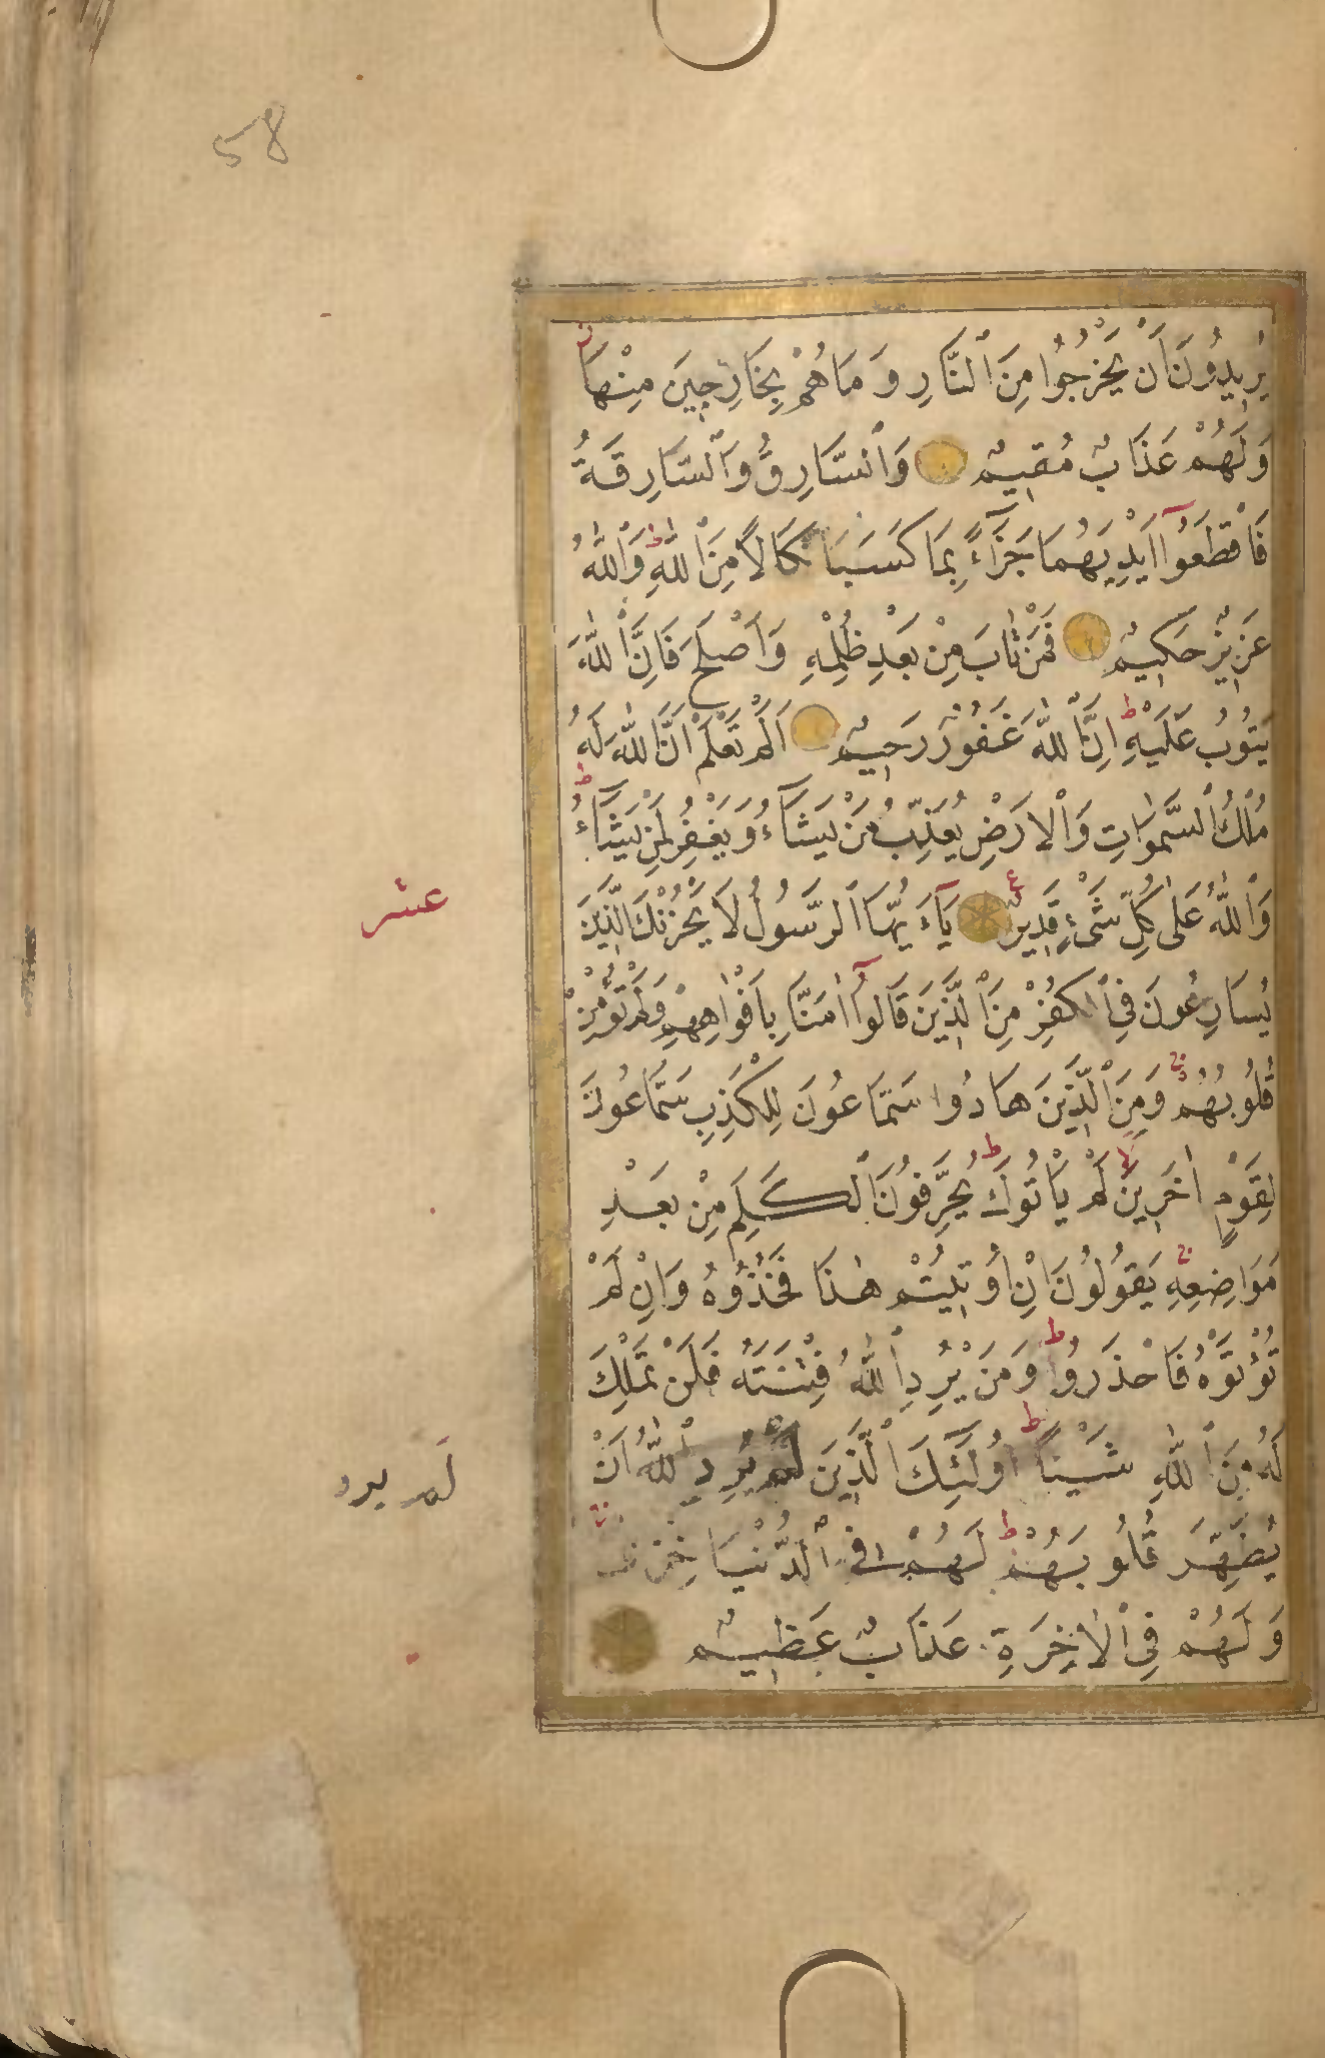 58
يُرِيدُونَ اَنْ يَخْرُجُوا مِنَ ٱلنَّارِ وَمَا هُمْ بِخَارِجِينَ مِنْهَا
وَلَهُمْ عَذَابٌ مُقِيمٌ وَٱلسَّارِقُ وَٱلسَّارِقَةُ
فَاقْطَعُوٓا اَيْدِيَهُمَا جَزَٓاءً بِمَا كَسَبَا نَكَالًا مِنَ ٱللّٰهِ ط وَٱللّٰهُ
عَزِيزٌ حَكِيمٌ فَمَنْ تَابَ مِنْ بَعْدِ ظُلْمِهِ وَاَصْلَحَ فَاِنَّ ٱللّٰهَ
يَتُوبُ عَلَيْهِ ط اِنَّ ٱللّٰهَ غَفُورٌ رَحِيمٌ اَلَمْ تَعْلَمْ اَنَّ ٱللّٰهَ لَهُ
مُلْكُ ٱلسَّمٰوَاتِ وَٱلْاَرْضِ يُعَذِّبُ مَنْ يَشَٓاءُ وَيَغْفِرُ لِمَنْ يَشَٓاءُ ط
وَٱللّٰهُ عَلٰى كُلِّ شَيْءٍ قَدِيرٌ ع يَٓاءَيُّهَا ٱلرَّسُولُ لَا يَحْزُنْكَ ٱلَّذِينَ
عشر
يُسَارِعُونَ فِي ٱلْكُفْرِ مِنَ ٱلَّذِينَ قَالُوٓا اٰمَنَّا بِاَفْوَاهِهِمْ وَلَمْ تُؤْمِنْ
قُلُوبُهُمْ ج وَمِنَ ٱلَّذِينَ هَادُوا سَمَّاعُونَ لِلْكَذِبِ سَمَّاعُونَ
لِقَوْمٍ اٰخَرِينَ لا لَمْ يَاْتُوكَ ط يُحَرِّفُونَ ٱلْكَلِمَ مِنْ بَعْدِ
مَوَاضِعِهِ ج يَقُولُونَ اِنْ اُوتِيتُمْ هٰذَا فَخُذُوهُ وَاِنْ لَمْ
تُؤْتَوْهُ فَاحْذَرُوا ط وَمَنْ يُرِدِ ٱللّٰهُ فِتْنَتَهُ فَلَنْ تَمْلِكَ
لَهُ مِنَ ٱللّٰهِ شَيْئًا ط اُولٰٓئِكَ ٱلَّذِينَ لَمْ يُرِدِ ٱللّٰهُ اَنْ
لَم يرد
يُطَهِّرَ قُلُوبَهُمْ ط لَهُمْ فِي ٱلدُّنْيَا خِزْيٌ
وَلَهُمْ فِي ٱلْاٰخِرَةِ عَذَابٌ عَظِيمٌ